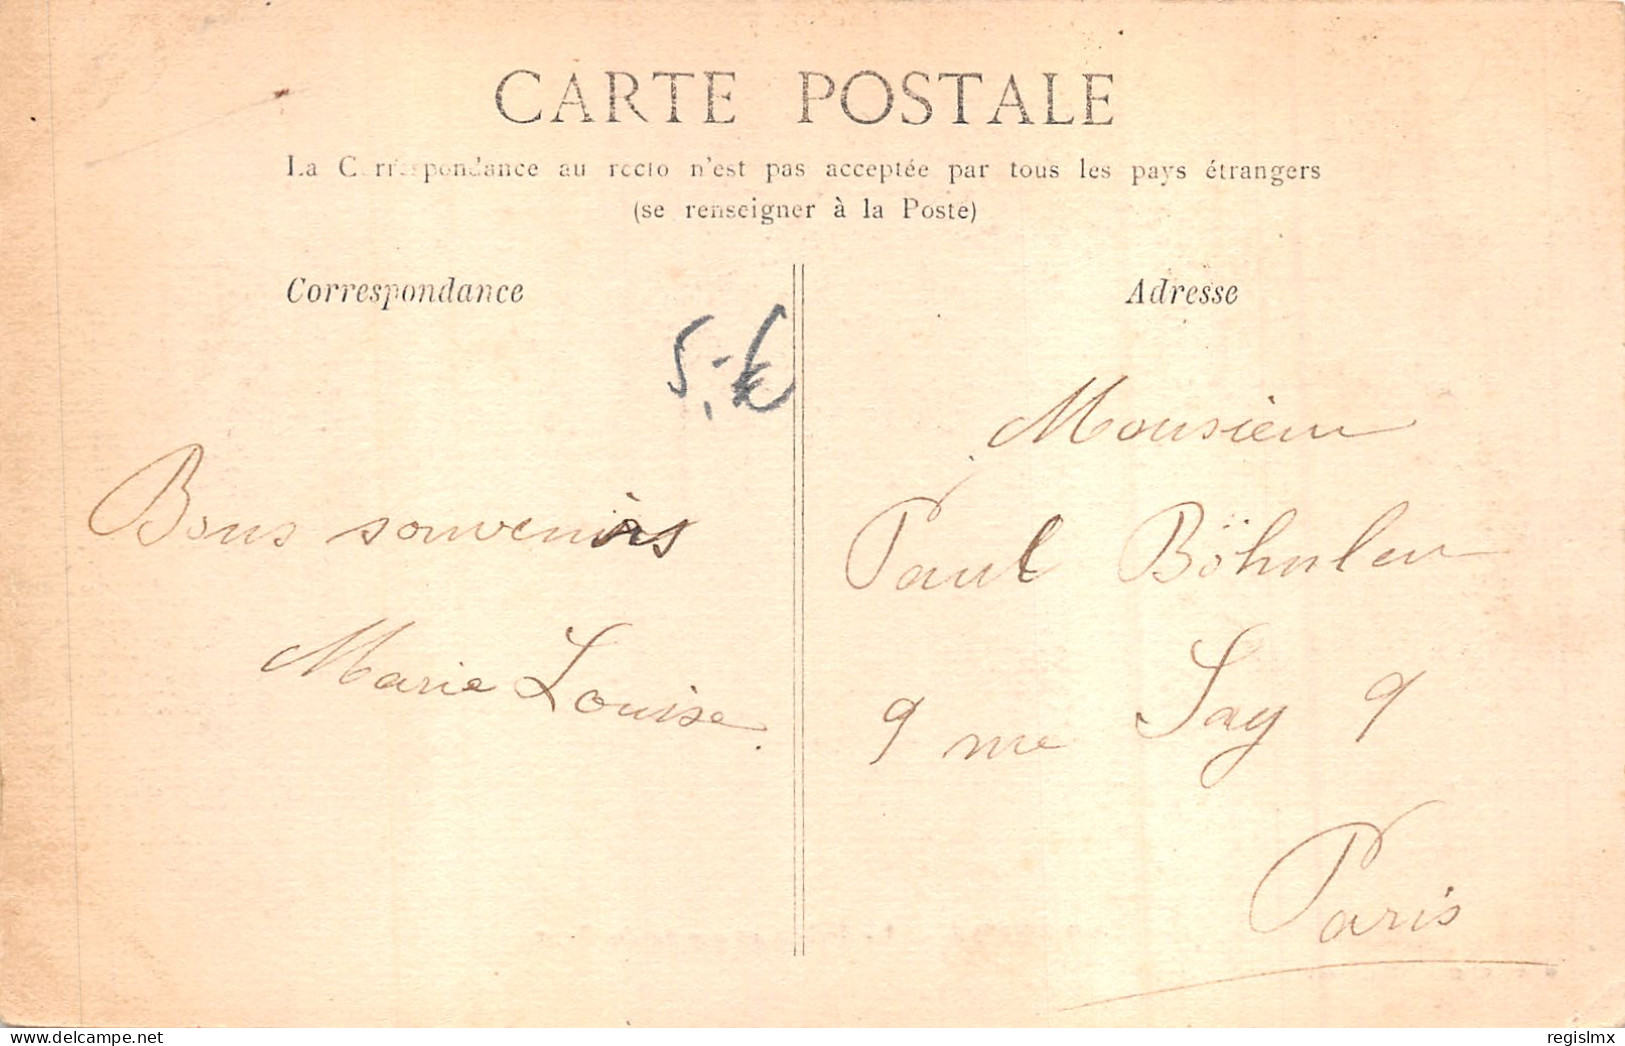 CARTE POSTALE
La Correspondance au recto n'est pas acceptée par tous les pays étrangers
(se renseigner à la Poste)
Correspondance
5,-€
Bons souvenirs
Marie Louise.
Adresse
Monsieur
Paul Böhnlen
9 rue Say 9
Paris
www.delcampe.net
regislmx